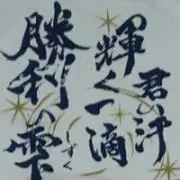 君の汗
輝く一滴
勝利の雫
しずく